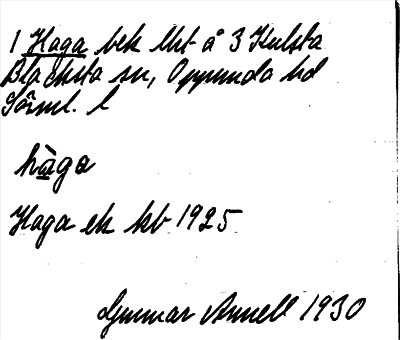 1 Haga bek lht å 3 Kulsta
Blacksta sn, Oppunda hd
Sörml. l
hàga
Haga ek kb 1925
Gunnar Annell 1930